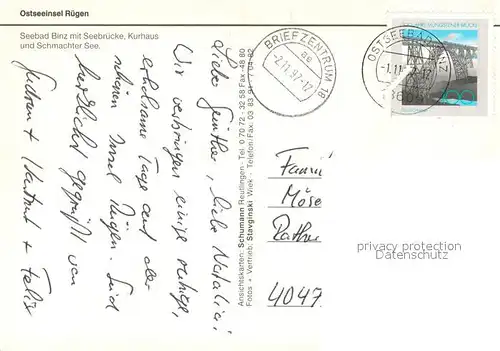 Ostseeinsel Rügen
Seebad Binz mit Seebrücke, Kurhaus
und Schmachter See.
Liebe Günther, liebe Natalie!
Wir verbringen einige ruhige,
erholsame Tage auf der
schönen Insel Rügen. Seid
herzlichst gegrüßt von
Gudrun + Hartmut + Felix
Ansichtskarten: Schumann Reutlingen · Tel. 0 70 72 - 32 58 Fax -48 80
Fotos · Vertrieb: Stavginski Wiek · Telefon/Fax: 03 83 91
BRIEFZENTRUM 18
-2.11.97-17
OSTSEEBAD BINZ
-1.11.
Möse
4047
privacy protection
Datenschutz